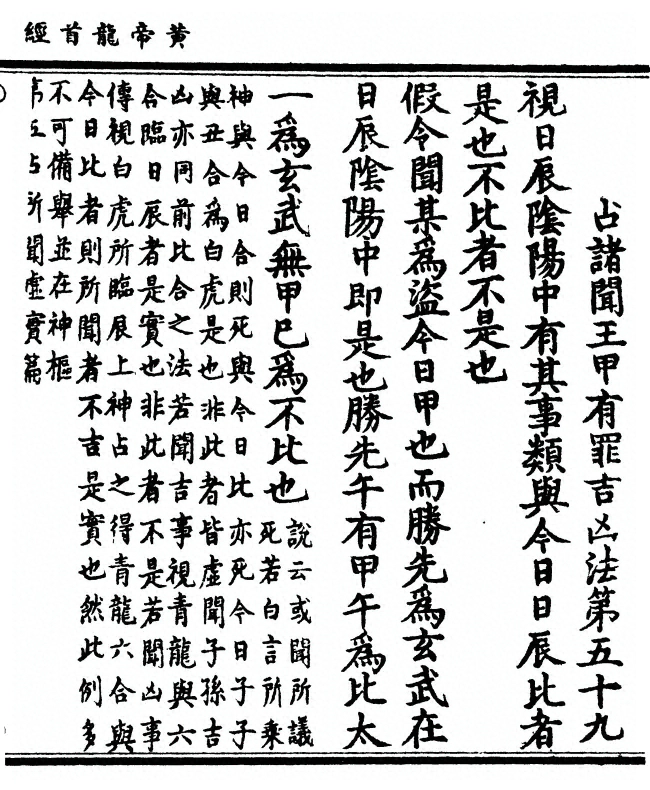 黃帝龍首經
占諸聞王甲有罪吉凶法第五十九
視日辰陰陽中有其事類與今日日辰比者
是也不比者不是也
假令聞某爲盜今日甲也而勝先爲玄武在
日辰陰陽中即是也勝先午有甲午爲比太
一爲玄武無甲巳爲不比也
說云或聞所議
死若白言所乘
神與今日合則死與今日比亦死今日子子
與丑合爲白虎是也非此者皆虛聞子孫吉
凶亦同前比合之法若聞吉事視青龍與六
合臨日辰者是實也非此者不是若聞凶事
傳視白虎所臨辰上神占之得青龍六合與
今日比者則所聞者不吉是實也然此例多
不可備舉並在神樞
占所聞虛實篇